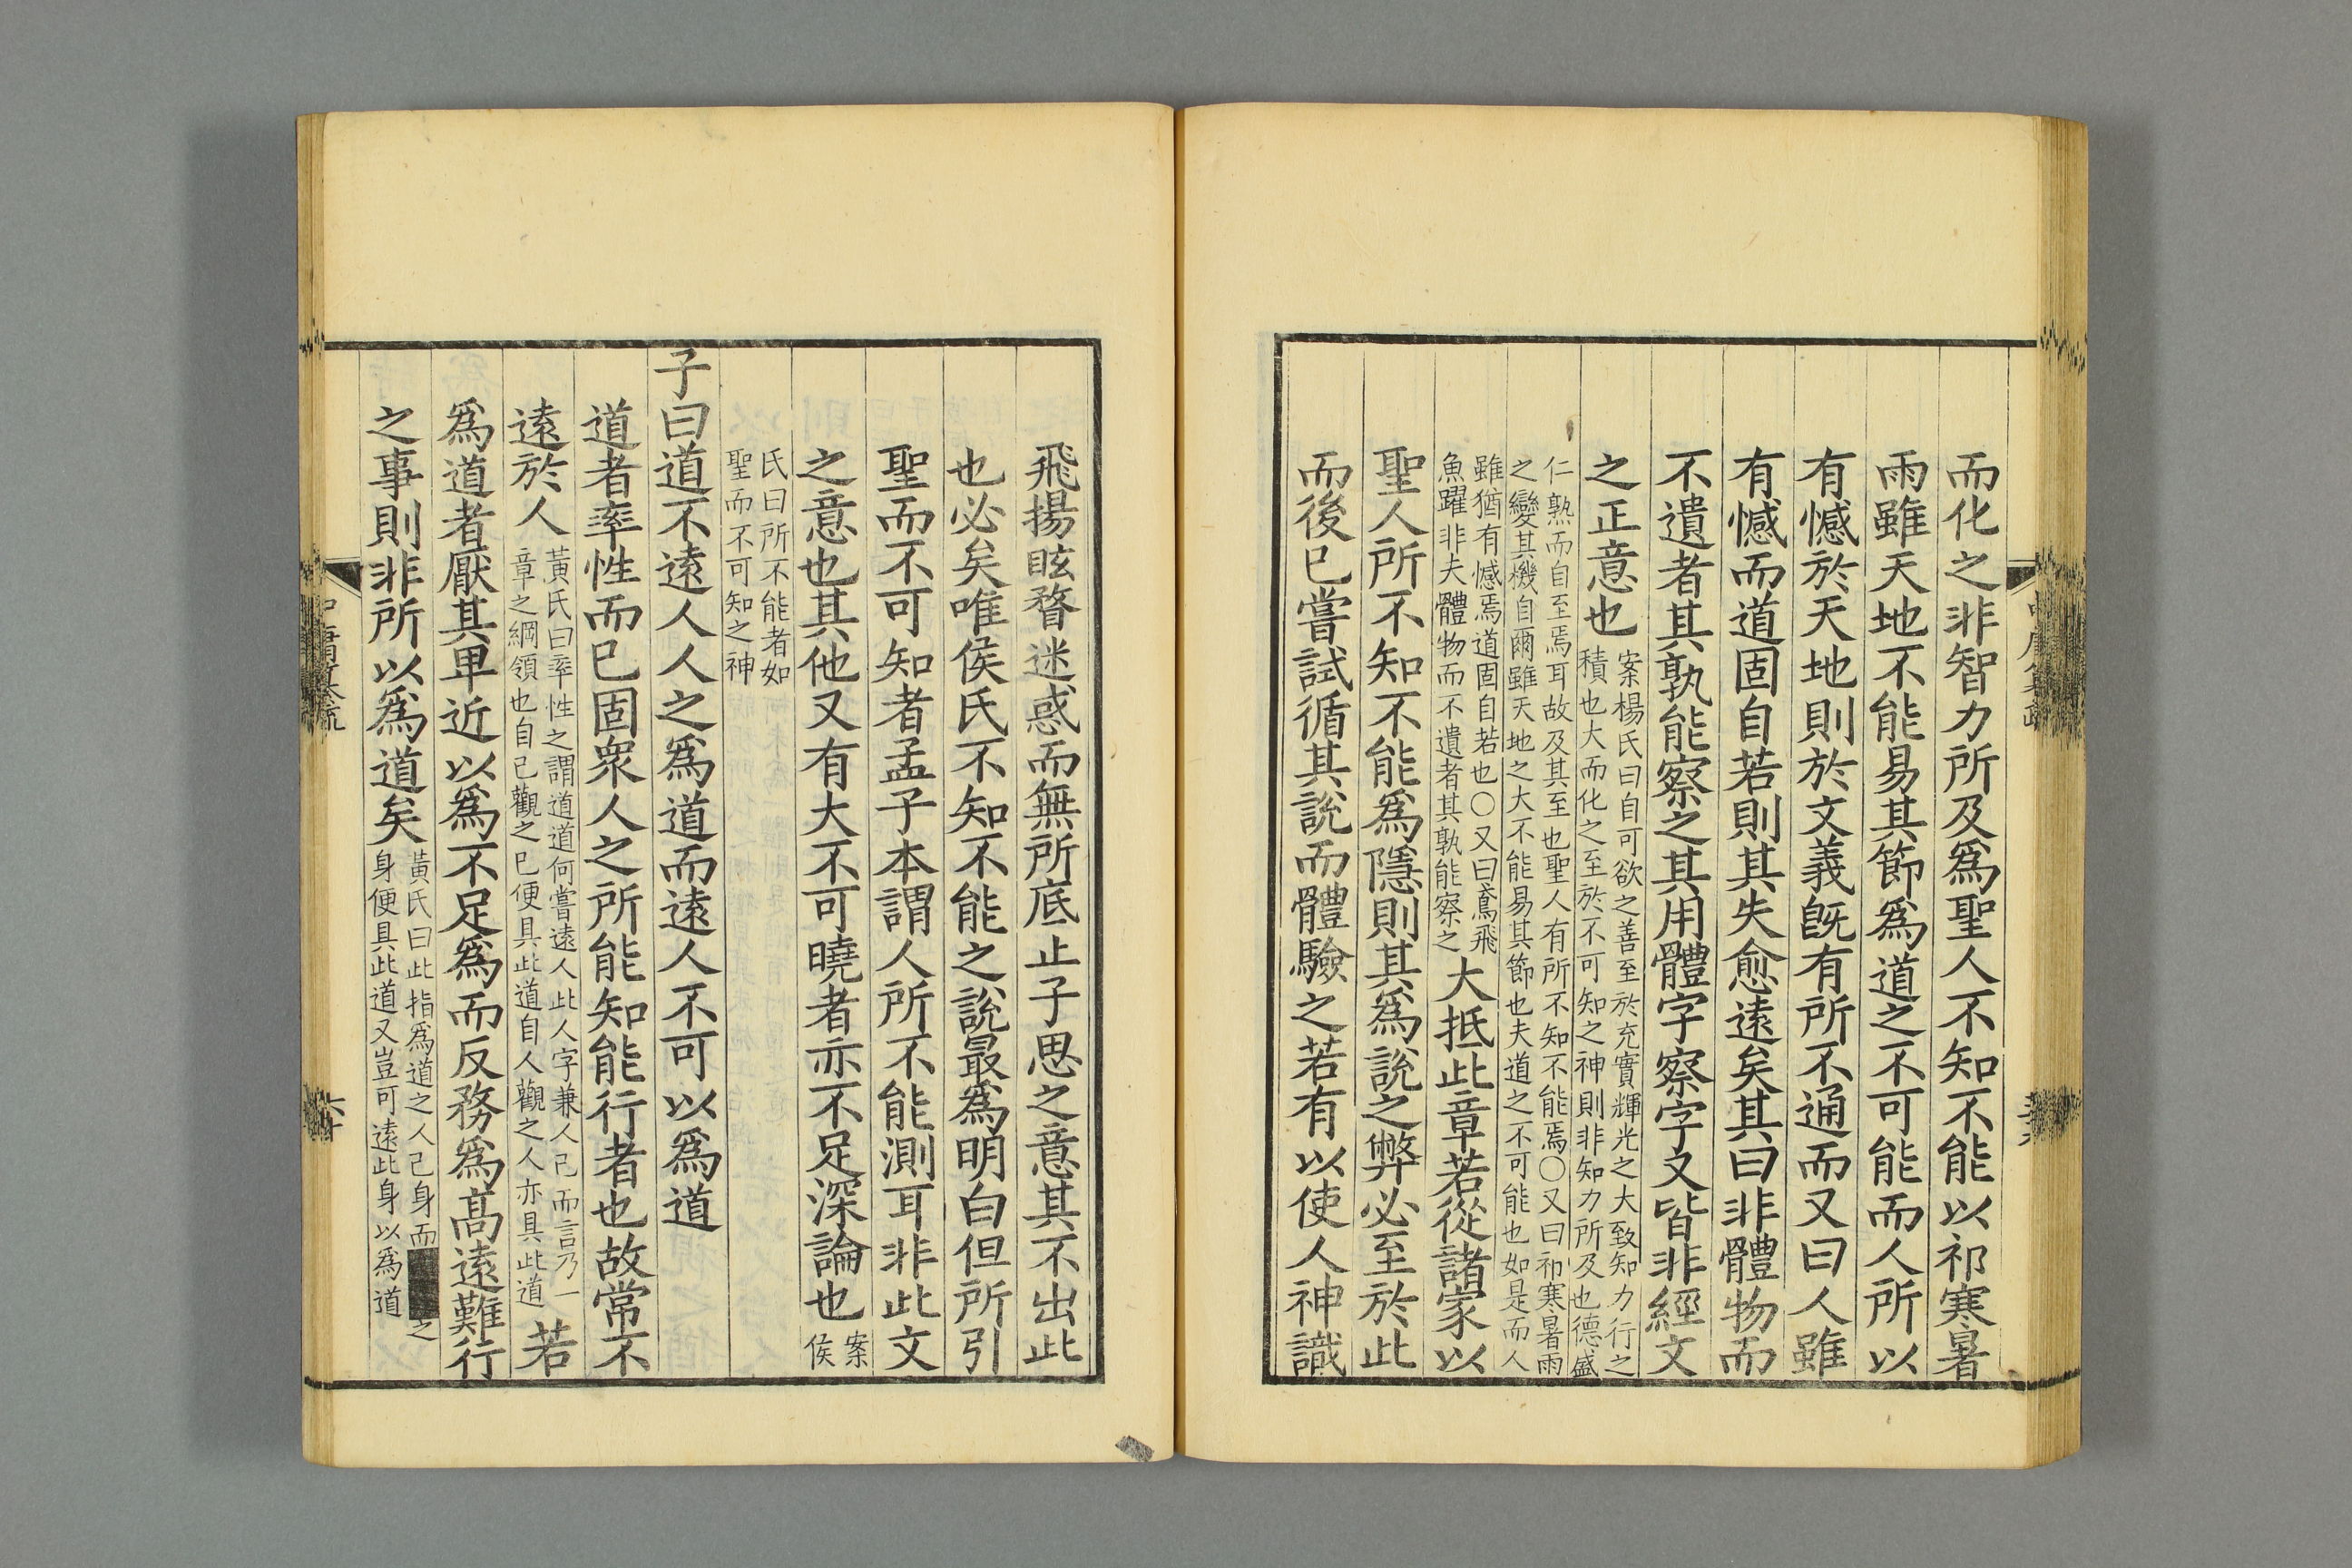 而化之非智力所及爲聖人不知不能以祁寒暑
雨雖天地不能易其節爲道之不可能而人所以
有憾於天地則於文義旣有所不通而又曰人雖
有憾而道固自若則其失愈遠矣其曰非體物而
不遺者其孰能察之其用體字察字又皆非經文
之正意也
案楊氏曰自可欲之善至於充實輝光之大致知力行之
積也大而化之至於不可知之神則非知力所及也德盛
仁熟而自至焉耳故及其至也聖人有所不知不能焉〇又曰祁寒暑雨
之變其機自爾雖天地之大不能易其節也夫道之不可能也如是而人
雖猶有憾焉道固自若也〇又曰鳶飛
魚躍非夫體物而不遺者其孰能察之
大抵此章若從諸家以
聖人所不知不能爲隱則其爲說之弊必至於此
而後已嘗試循其說而體驗之若有以使人神識
飛揚眩瞀迷惑而無所底止子思之意其不出此
也必矣唯侯氏不知不能之說最爲明白但所引
聖而不可知者孟子本謂人所不能測耳非此文
之意也其他又有大不可曉者亦不足深論也
案
侯
氏曰所不能者如
聖而不可知之神
子曰道不遠人人之爲道而遠人不可以爲道
道者率性而已固衆人之所能知能行者也故常不
遠於人
黃氏曰率性之謂道道何嘗遠人此人字兼人己而言乃一
章之綱領也自己觀之已便具此道自人觀之人亦具此道
若
爲道者厭其卑近以爲不足爲而反務爲高遠難行
之事則非所以爲道矣
黃氏曰此指爲道之人己身而之
身便具此道又豈可遠此身以爲道
中庸纂疏
六十